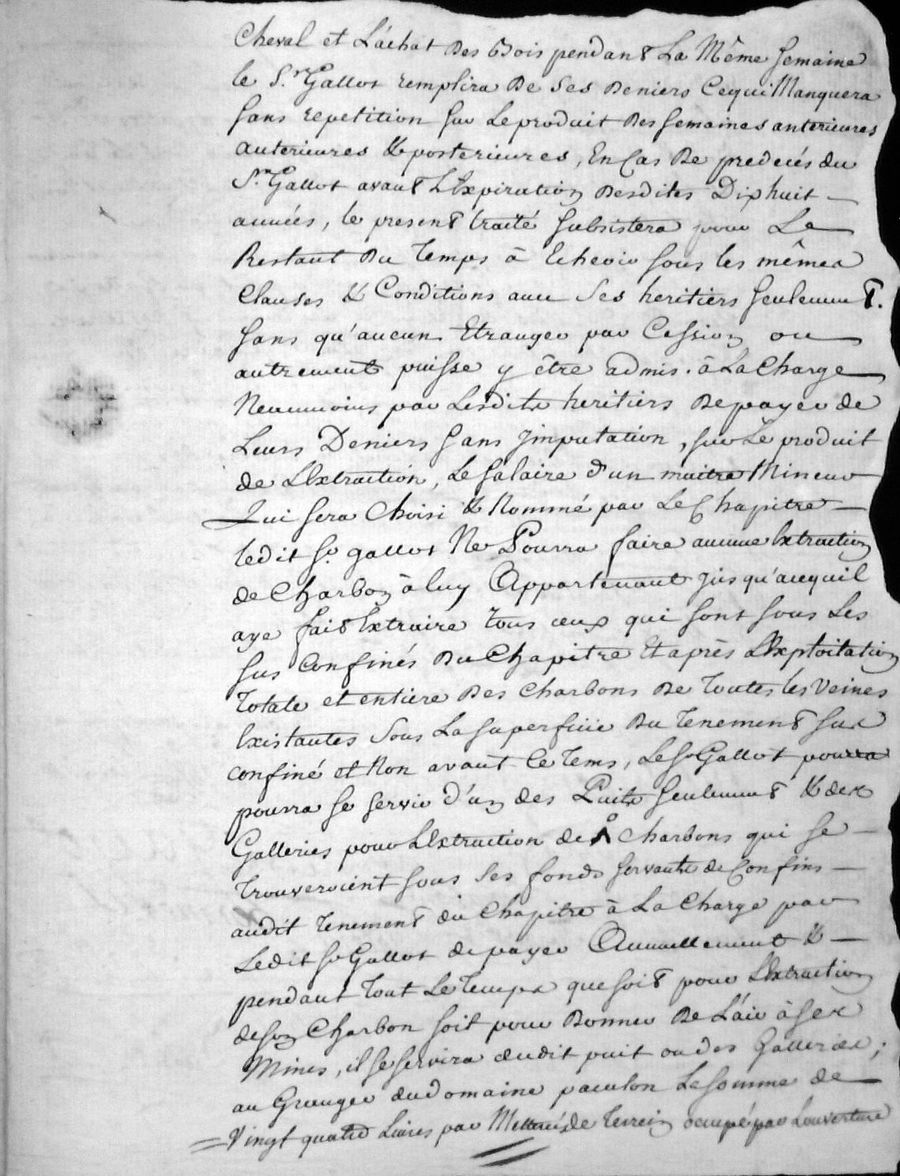 Cheval et L'achat Des Bois pendant La Même Semaine
le Sr. Gallot remplira De Ses Deniers Ce qui Manquera
Sans repetition Sur Le produit Des Semaines anterieures
anterieures & posterieures, En Cas De predecés du
Sr. Gallot avant L'Expiration Desdites Dixhuit
années, le present traité Subsistera pour Le
Restant Du Temps à Echeoir Sous les mêmes
Clauses & Conditions avec Ses heritiers Seulement.
Sans qu'aucun Etranger par Cession ou
autrement puisse y être admis. à La Charge
Neanmoins par Lesdits heritiers De payer de
Leurs Deniers Sans Imputation, Sur Le produit
de L'Extraction, Le Salaire d'un maitre Mineur
Qui Sera Choisi & Nommé par Le Chapitre
ledit Sr. gallot Ne Pourra faire aucune Extraction
de Charbon à luy Appartenant jusqu'acequil
aye fait Extraire Tous ceux qui Sont Sous Les
Sus Confinés Du Chapitre Et après L'Exploitation
Totale et entiere Des Charbons De Toutes les Veines
Existantes Sous La Superficie Du Tenement Sus
confiné et Non avant Ce Tems, Le Sr Gallot pourra
pourra Se Servir d'un des Puits Seulement & des
Galleries pour L'Extraction des Charbons qui Se
Trouveroient Sous Ses fonds Servants de Confins
audit Tenement du Chapitre à La Charge par
Ledit Sr Gallot de payer Annuellement &
pendant Tout Le Temps que Soit pour L'Extraction
de Son Charbon Soit pour Donner De L'air à Ses
Mines, il Se Servira dudit puit ou des Galleries;
au Granger du domaine Le Somme de
Vingt quatre Livres par de Terrein occupé par Louverture